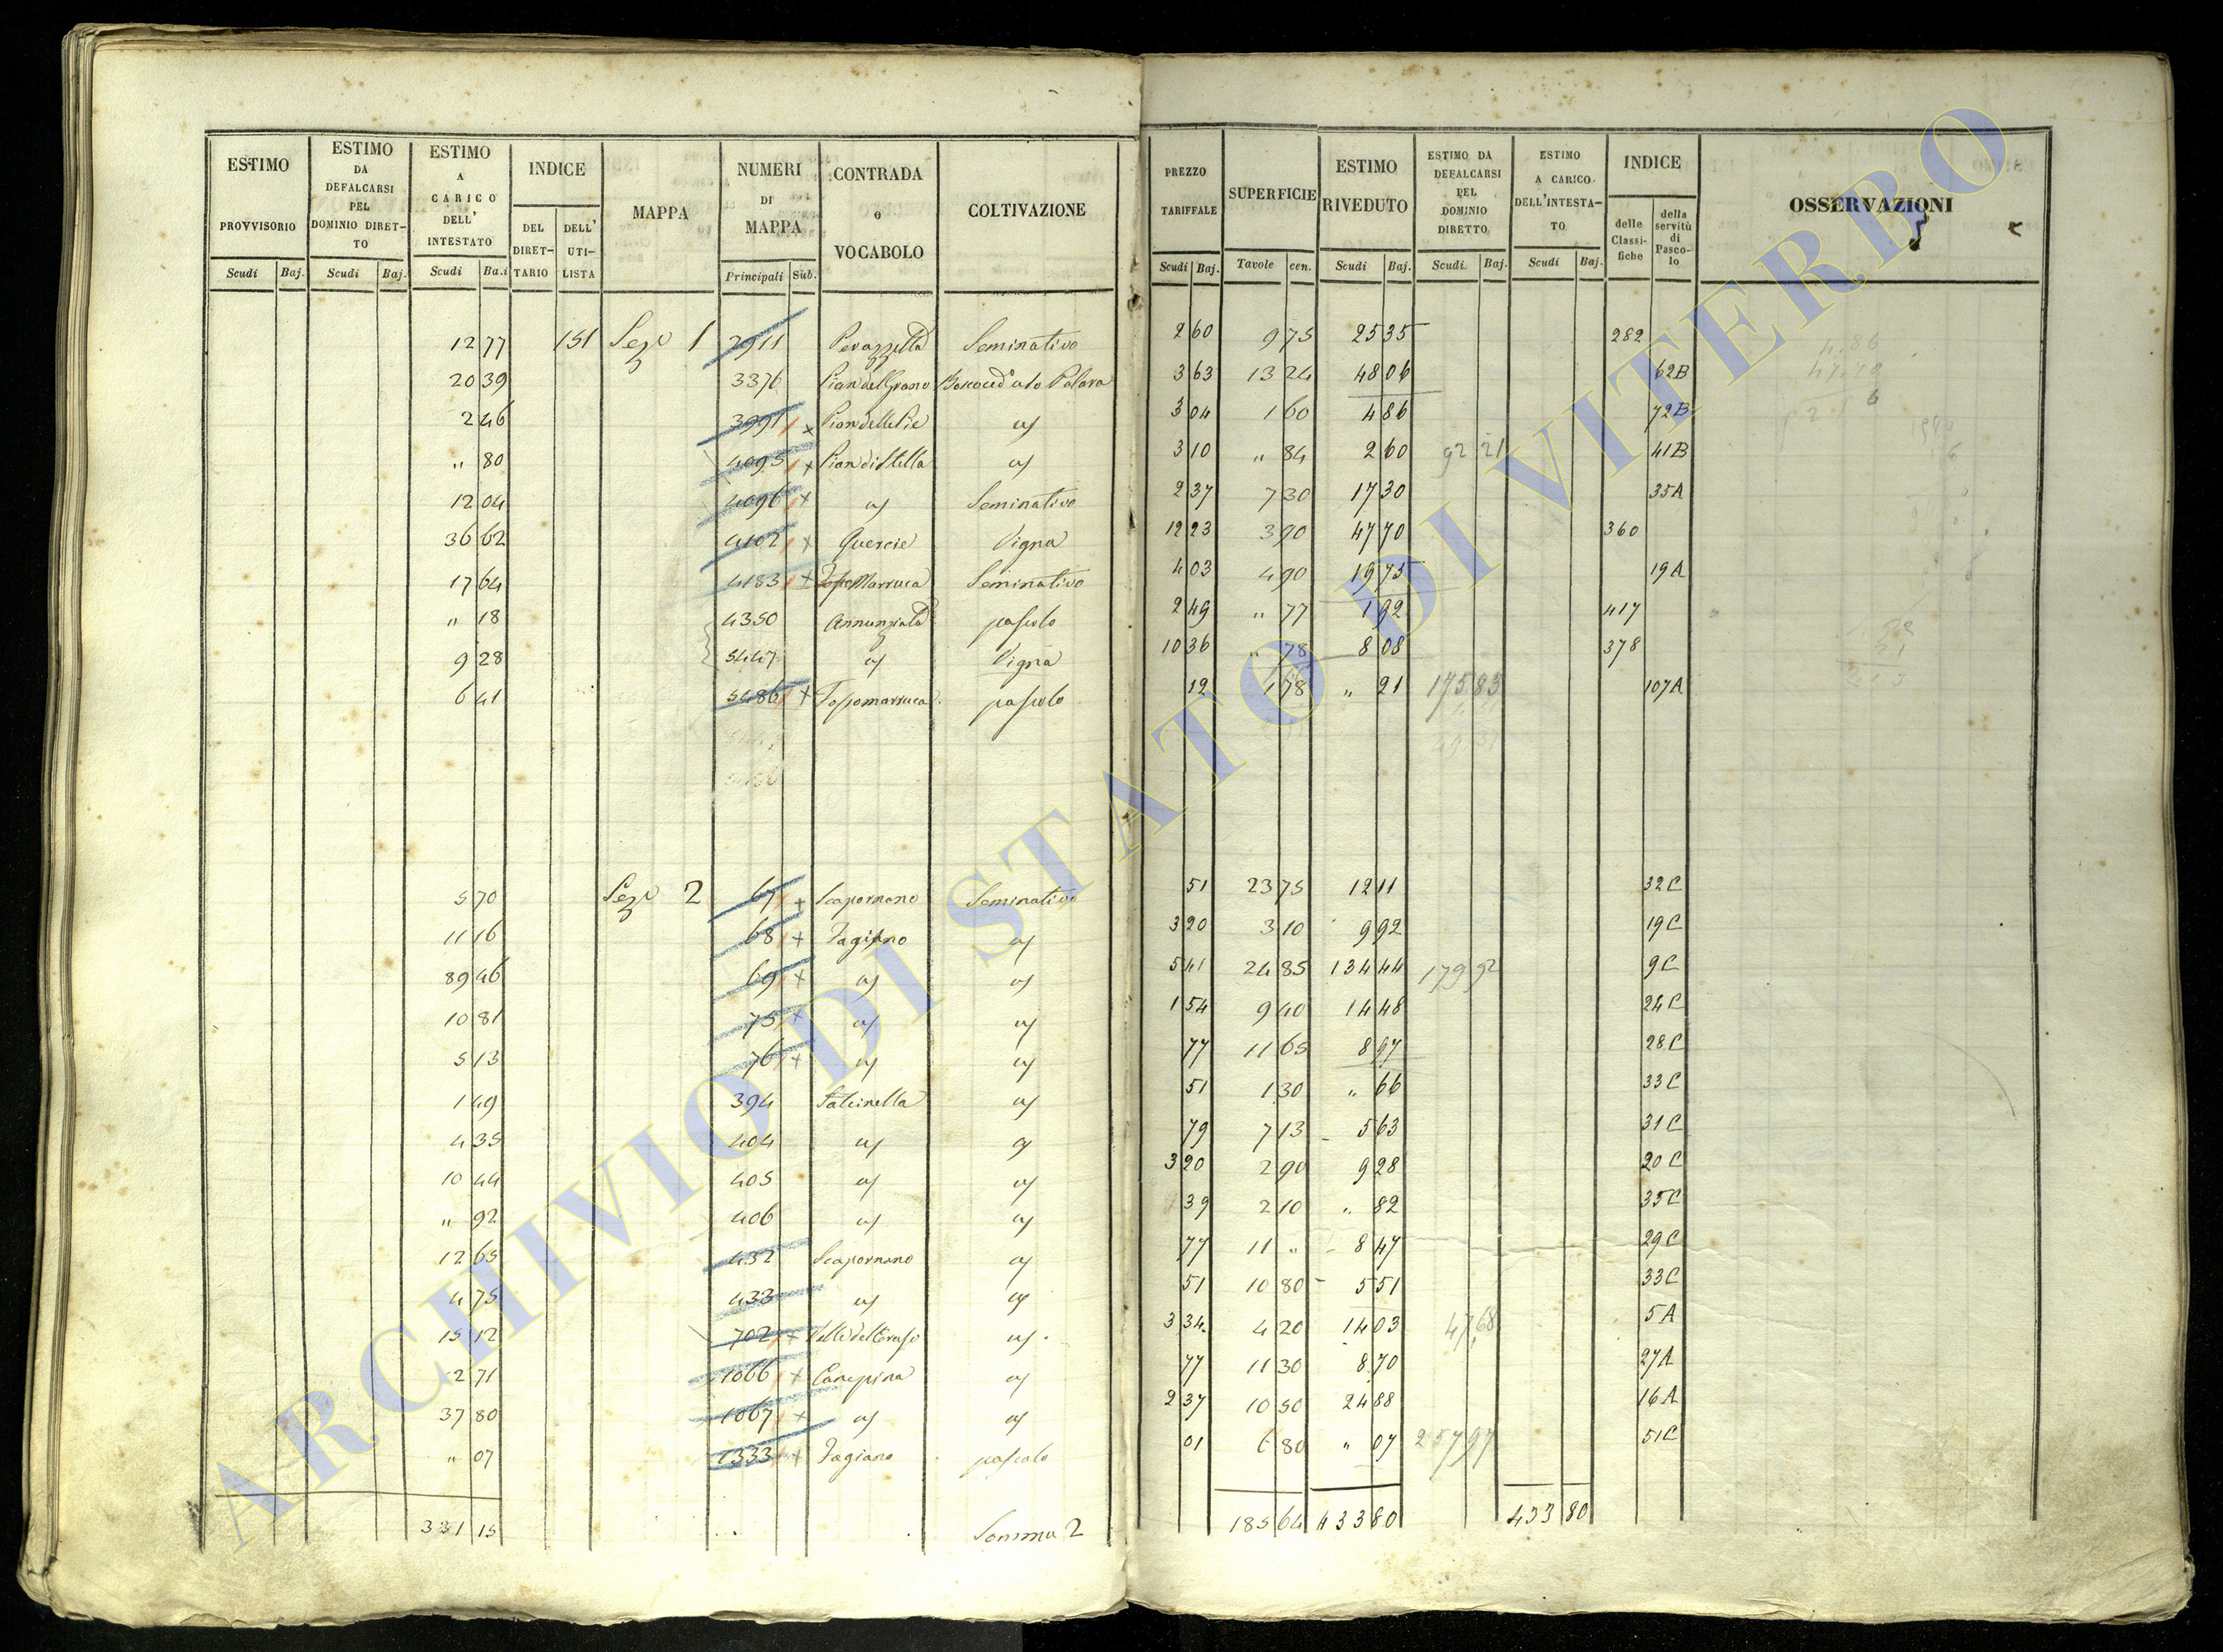 ESTIMO PROVVISORIO | ESTIMO DA DEFALCARSI PEL DOMINIO DIRET-TO | ESTIMO A CARICO DELL' INTESTATO | INDICE | MAPPA | NUMERI DI MAPPA | CONTRADA o VOCABOLO | COLTIVAZIONE | PREZZO TARIFFALE | SUPERFICIE | ESTIMO RIVEDUTO | ESTIMO DA DEFALCARSI PEL DOMINIO DIRETTO | ESTIMO A CARICO DELL'INTESTA-TO | INDICE | OSSERVAZIONI
DEL DIRET-TARIO | DELL' UTI-LISTA | delle Classi-fiche | della servitù di Pasco-lo
Scudi | Baj. | Scudi | Baj. | Scudi | Ba.i | Principali | Sub. | Scudi | Baj. | Tavole | cen. | Scudi | Baj. | Scudi | Baj. | Scudi | Baj.
12 77 | 151 | Sezе 1 | 2911 | Perazzetta | Seminativo | 2 60 | 9 75 | 25 35 | 282
20 39 | 3376 | Pian del Grano | 3 63 | 13 24 | 48 06 | 62B
2 46 | 3991 | x | Pian delle Pie | „ | 3 04 | 1 60 | 4 86 | 72B
„ 80 | 4095 | x | Pian di Stella | „ | 3 10 | „ 84 | 2 60 | 92 21 | 41B
12 04 | 4096 | x | „ | Seminativo | 2 37 | 7 30 | 17 30 | 35A
36 62 | 4102 | x | Quercie | Vigna | 12 23 | 3 90 | 47 70 | 360
17 64 | 4183 | x | Topo Marruca | Seminativo | 4 03 | 4 90 | 19 75 | 19A
„ 18 | 4350 | Annunziata | pascolo | 2 49 | „ 77 | 1 92 | 417
9 28 | 5447 | „ | Vigna | 10 36 | „ 78 | 8 08 | 378
6 41 | 5486 | x | Topomarruca | pascolo | 12 | 1 78 | „ 21 | 175 83 | 107A
5 70 | Seze 2 | 67 | x | Scapornano | Seminativo | 51 | 23 75 | 12 11 | 32C
11 16 | 68 | x | Fagiano | „ | 3 20 | 3 10 | 9 92 | 19C
89 46 | 69 | x | „ | „ | 5 41 | 24 85 | 134 44 | 179 92 | 9C
10 81 | 75 | x | „ | „ | 1 54 | 9 40 | 14 48 | 24C
5 13 | 76 | x | „ | „ | 77 | 11 65 | 8 97 | 28C
1 49 | 394 | Salcinella | „ | 51 | 1 30 | „ 66 | 33C
4 35 | 404 | „ | „ | 79 | 7 13 | 5 63 | 31C
10 44 | 405 | „ | „ | 3 20 | 2 90 | 9 28 | 20C
„ 92 | 406 | „ | „ | 39 | 2 10 | „ 82 | 35C
12 65 | 432 | Scapornano | „ | 77 | 11 „ | 8 47 | 29C
4 75 | 433 | „ | „ | 51 | 10 80 | 5 51 | 33C
15 12 | 702 | x | „ | 3 34 | 4 20 | 14 03 | 47 68 | 5A
2 71 | 1066 | x | Canepina | „ | 77 | 11 30 | 8 70 | 27A
37 80 | 1067 | x | „ | „ | 2 37 | 10 50 | 24 88 | 16A
„ 07 | 1333 | x | Fagiano | pascolo | 01 | 6 80 | „ 07 | 257 97 | 51C
331 15 | Somma 2 | 185 64 | 433 80 | 433 80
ARCHIVIO DI STATO DI VITERBO